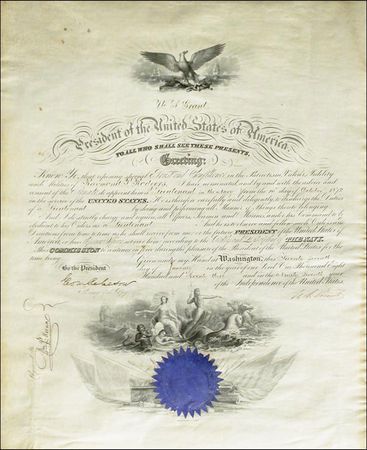 U. S. Grant
President of the United States of America,
TO ALL WHO SHALL SEE THESE PRESENTS,
Greeting:
Know Ye, that reposing special Trust and Confidence in the Patriotism, Valour, Fidelity
and Abilities of Raymond P. Rodgers I have nominated and with the advice and
consent of the Senate do appoint him a Lieutenant in the Navy from the
in the service of the UNITED STATES. He is therefore carefully and diligently to discharge the Duties
of a Lieutenant by doing and performing all Manner of things thereto belonging.
And I do strictly charge and require all Officers, Seamen and Marines under his Command to be
obedient to his Orders as a Lieutenant And he is to observe and follow such Orders and
Directions from time to time as he shall receive from me or the future PRESIDENT of the United States of
America or his Superior Officer set over him according to the Rules and Discipline of THE NAVY.
COMMISSION to continue in force during the pleasure of the President of the United States for the
time being.
Given under my Hand at Washington, this
in the year of our Lord One Thousand Eight
Hundred and and in the year
of the Independence of the United States.
By the President
Geo. M. Robeson
U. S. Grant